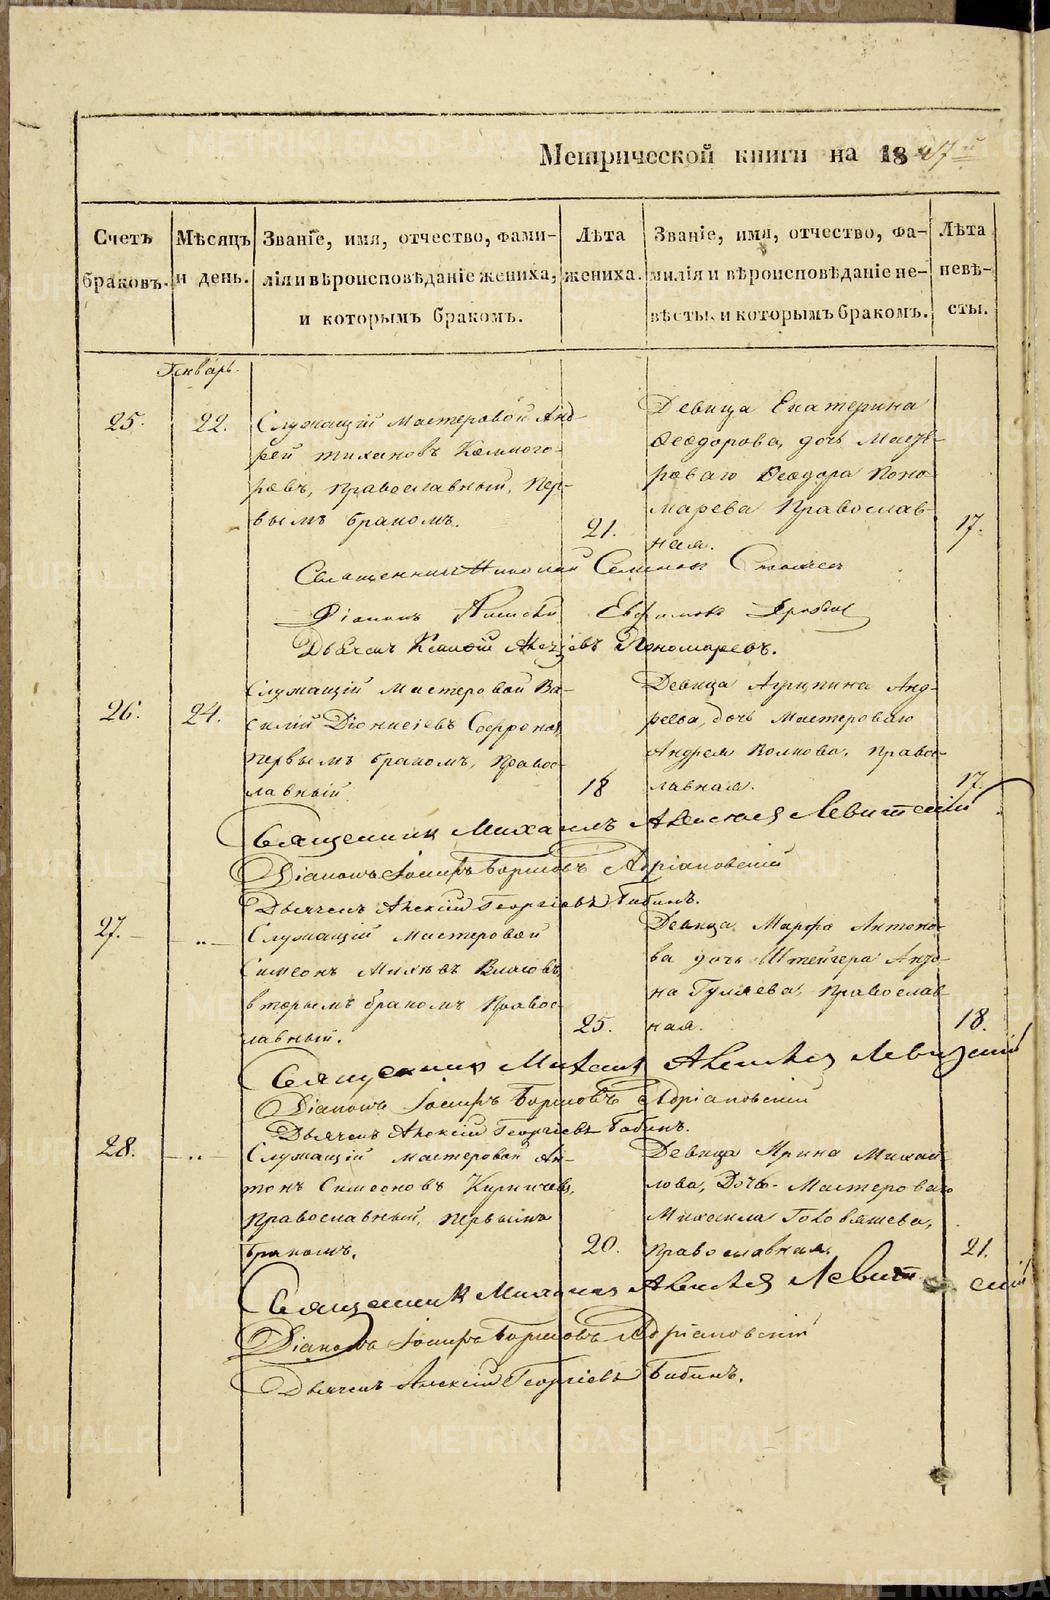 Метрической книги на 1847й
Счетъ браковъ.
Мѣсяцъ и день.
Званіе, имя, отчество, фами-
лія и вѣроисповѣданіе жениха,
и которымъ бракомъ.
Лѣта жениха.
Званіе, имя, отчество, фа-
милія и вѣроисповѣданіе не-
вѣсты и которымъ бракомъ.
Лѣта невѣ-
сты.
Генварь.
25. 22.
Служащій мастеровой Анд-
рей Тихановъ Комного-
ровъ, православный, пер-
вымъ бракомъ.
21.
Девица Екатерина
Ѳеодорова, дочь Масте-
роваго Ѳеодора Поно-
марева Православ-
ная.
17.
Священникъ Николай Семенов
Діаконъ Алексій Евфимов
Дьячекъ Пономаревъ.
26. 24.
Служащій мастеровой Ва-
силій Діонисіевъ Софронов,
первымъ бракомъ, Правос-
лавный.
18
Девица Агрипина Анд-
реева, дочь Мастероваго
Андрея Волкова, Право-
лавная.
17.
Священник Михаилъ Алексіев Левитскій
Діаконъ Іосифъ Борисовъ Адріановскій
Дьячекъ Алексій Георгіевъ Бабинъ.
27. - „ -
Служащій Мастеровой
Симеонъ Власовъ
вторымъ бракомъ Правос-
лавный.
25.
Девица Марфа Антоно-
ва дочь Штейгера Анто-
на Гуляева, Православ-
ная.
18.
Священник Михаил Алексіев Левитскій
Діаконъ Іосифъ Борисовъ Адріановскій
Дьячекъ Алексій Георгіевъ Бабинъ.
28. - „ -
Служащій мастеровой Ан-
тонъ Симеоновъ Кирпичев,
Православный, первымъ
бракомъ.
20.
Девица Ирина Михай-
лова, Дочь Мастероваго
Михаила Головашева,
Православная.
21.
Священник Михаил Алексіев Левитскій
Діаконъ Іосифъ Борисовъ Адріановскій
Дьячекъ Алексій Георгіевъ Бабинъ.
METRIKI.GASO-URAL.RU